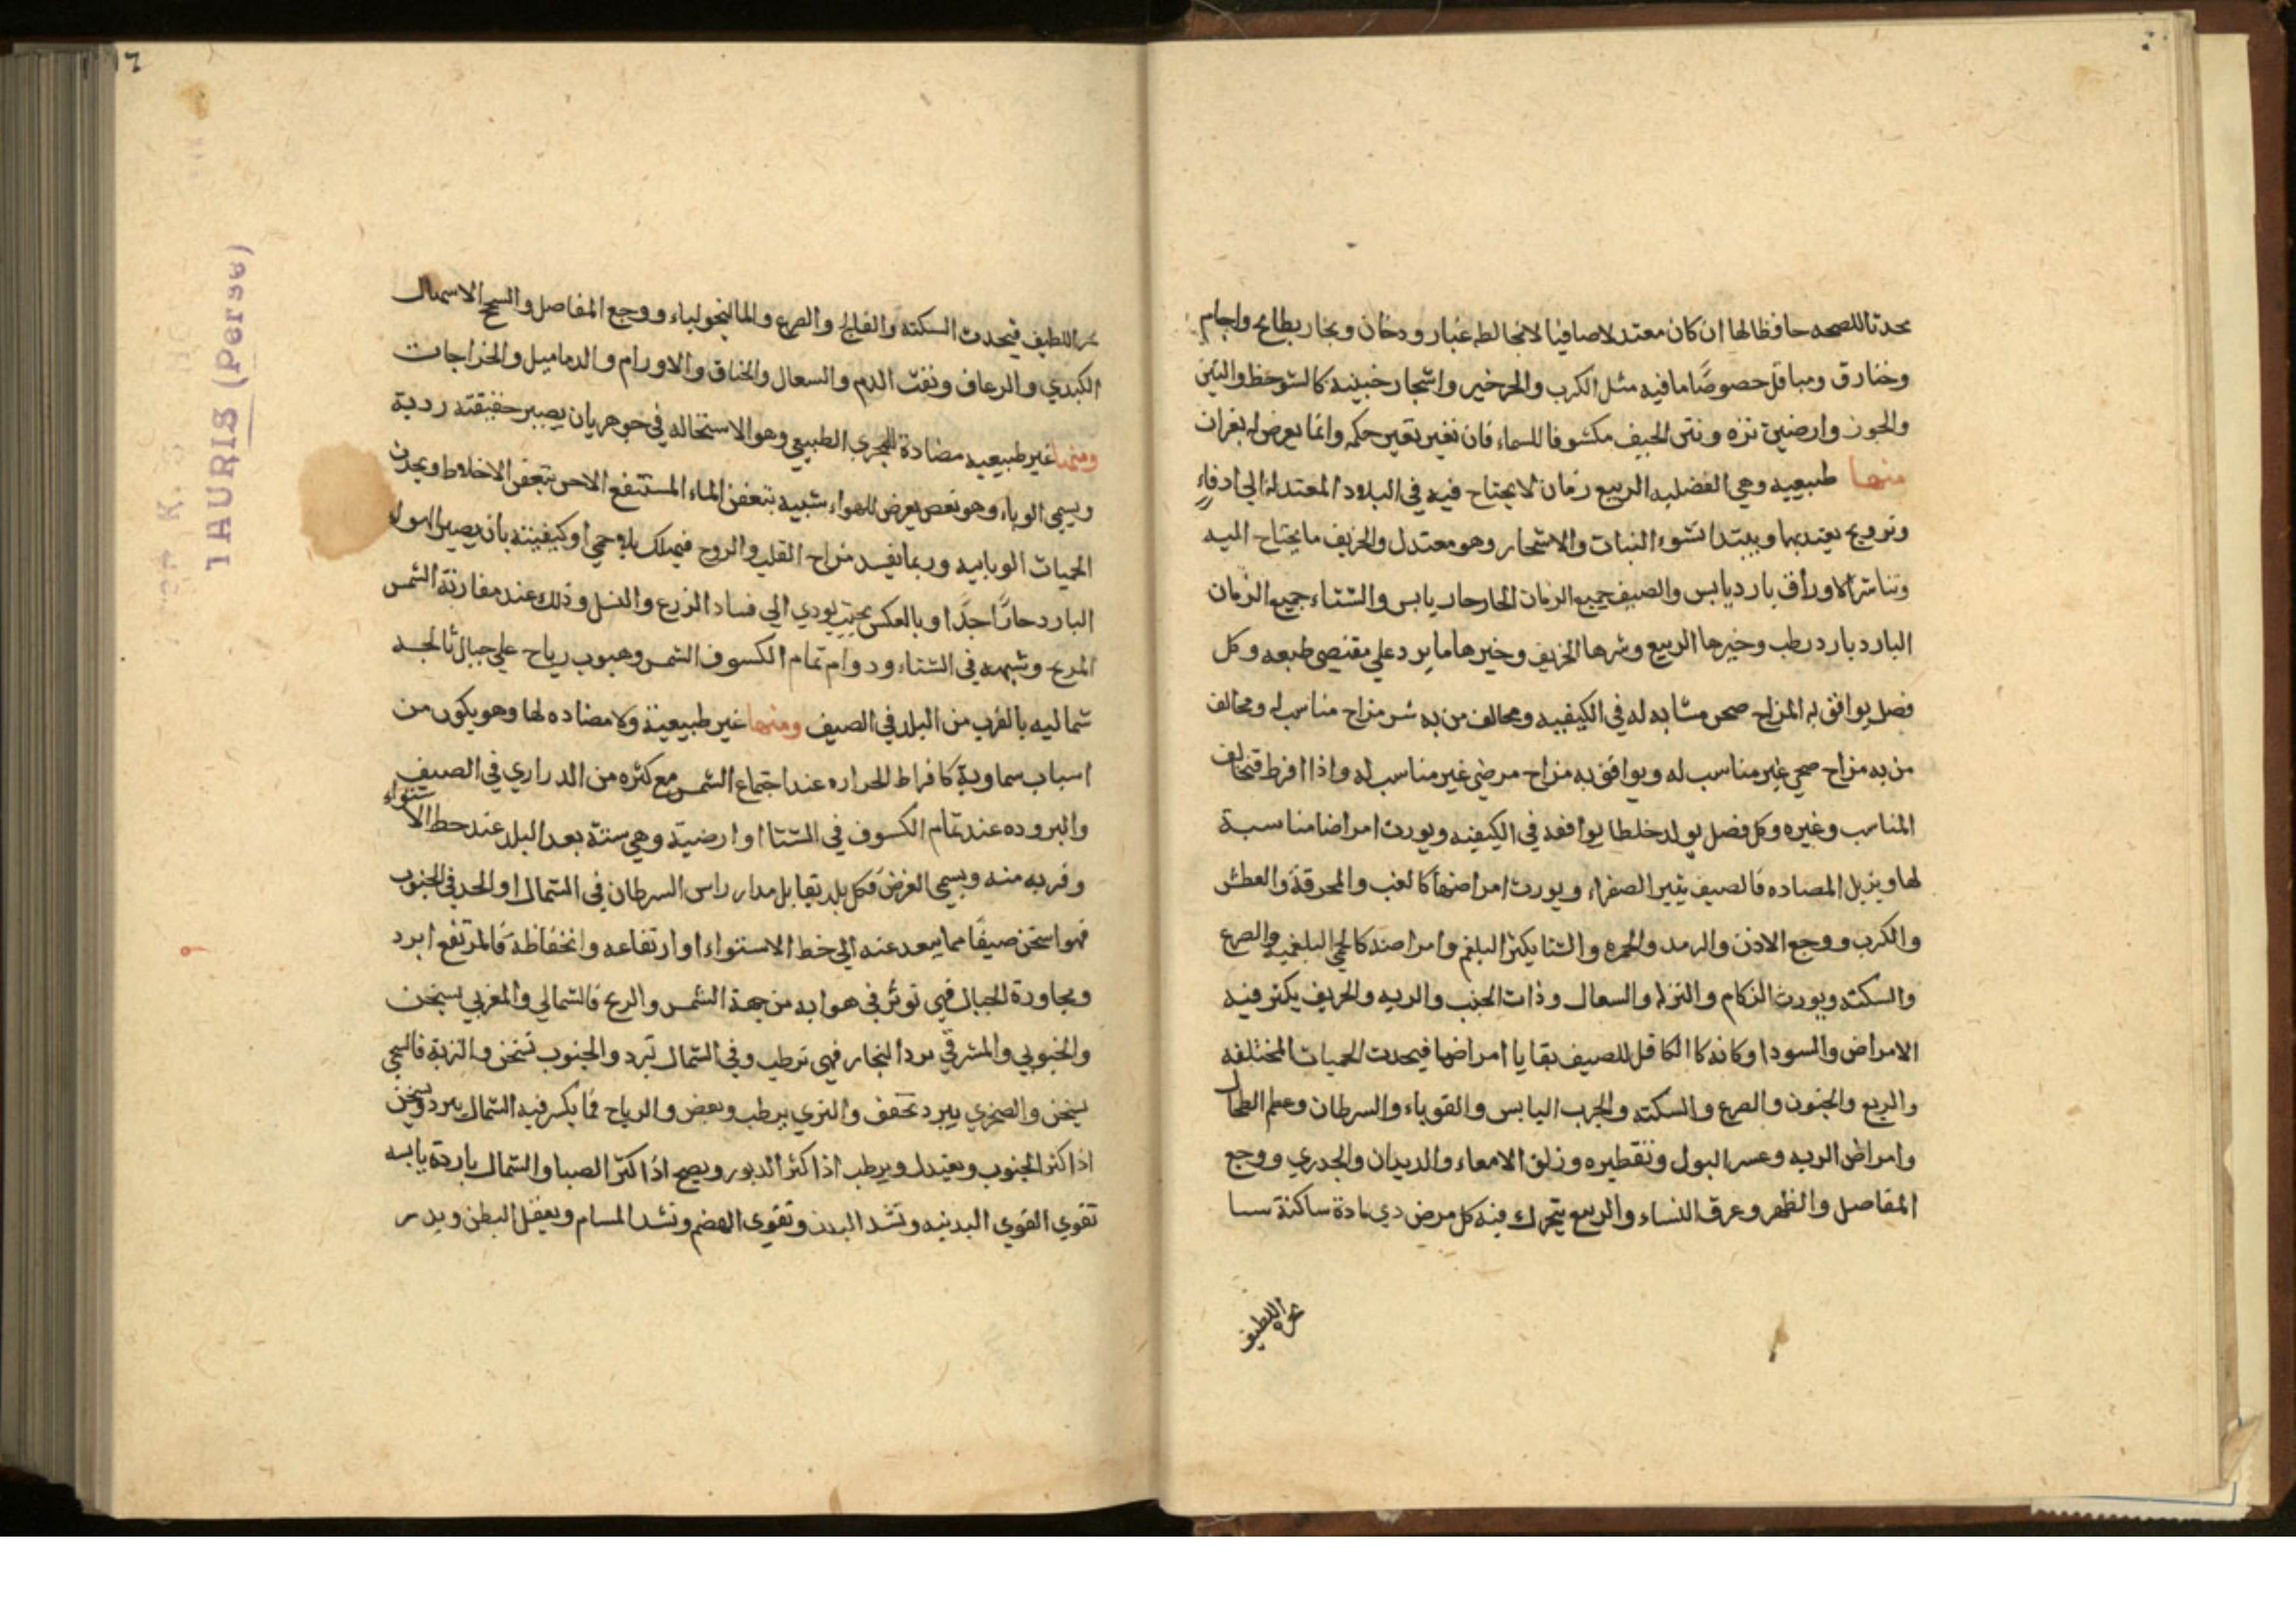 محدثا للصحه حافظا لها ان كان معتدلا صافيا لا يخالطه غبار ودخان وبخار بطايح واجام
وخنادق ومباقل خصوصًا ما فيه مثل الكرب والجرجير واشجار خبيثه كالشوحظ والتين
والجوز وارضين نزه ونتن الجيف مكشوفا للسماء فان تغير تغير حكمه وانما يعرض له تغيران
منها طبيعيه وهي الفضليه الربيع زمان لا يحتاج فيه في البلاد المعتدله الي ادفاء
وترويح يعتد بها ويبتدا نشوء النبات والاشجار وهو معتدل والخريف ما يحتاج اليه
وتناثر الاوراق بارد يابس والصيف جميع الزمان الحار حار يابس والشتاء جميع الزمان
البارد بارد رطب وخيرها الربيع وشرها الخريف وخيرها ما يرد علي مقتضي طبعه وكل
فصل يوافق به المزاج صحي مشابه له في الكيفيه ومخالف من به شر مزاج مناسب له ومخالف
من به مزاج صحي غير مناسب له ويوافق به مزاج مرضي غير مناسب له واذا افرط فتخالف
المناسب وغيره وكل فصل يولد خلطا يوافقه في الكيفيه ويورث امراضا مناسبة
لها ويزيل المضاده فالصيف يثير الصفراء ويورث امراضها كالغب والمحرقة والعطش
والكرب ووجع الاذن والرمد والحمره والشتا يكثر البلغم وامراضه كالحمي البلغميه والصرع
والسكته ويورث الزكام والنزله والسعال وذات الجنب والريه والخريف يكثر فيه
الامراض والسودا وكانه كالكافل للصيف بقايا امراضها فيحدث الحميات المختلفه
والربع والجنون والصرع والسكته والجرب اليابس والقوباء والسرطان وعظم الطحال
وامراض الريه وعسر البول وتقطيره وزلق الامعاء والديدان والجدري ووجع
المفاصل والظهر وعرق النساء والربيع يتحرك فيه كل مرض دي مادة ساكنة
اللطيف
اللطيف فيحدث السكته والفالج والصرع والمالنخولياء ووجع المفاصل والسحج الاسهال
الكبدي والرعاف ونفث الدم والسعال والخناق والاورام والدماميل والخراجات
ومنها غير طبيعيه مضادة للمجري الطبيعي وهو الاستحاله في جوهره بان يصير حقيقته ردية
ويسمي الوباء وهو تعفن يعرض للهواء شبيه بتعفن الماء المستنقع الاجن بتعفن الاخلاط ويحدث
الحميات الوبايه وربما يفسد مزاج القلب والروح فيهلك بلا حمي او كيفيته بان يصير الهواء
البارد حارًا جدًا وبالعكس بحيث يودي الي فساد الزرع والنسل وذلك عند مقارنة الشمس
المريخ وشبهه في الشتاء ودوام تمام الكسوف الشمس وهبوب رياح علي جبال
شماليه بالقرب من البلد في الصيف ومنها غير طبيعية ولا مضاده لها وهو يكون من
اسباب سماوية كافراط الحراره عند اجتماع الشمس مع كثره من الدراري في الصيف
والبروده عند تمام الكسوف في الشتا او ارضية وهي ستة بعد البلد عند خط الاستواء
وقربه منه ويسمي العرض فكل بلد يقابل مدار راس السرطان في الشمال او الجدي في الجنوب
فهو اسخن صيفًا مما يبعد عنه الي خط الاستواء او ارتفاعه وانخفاظه فالمرتفع ابرد
ومجاورة الجبال فهي توثر في هوايه من جهة الشمس والريح فالشمالي والمغربي يسخن
والجنوبي والمشرقي يبرد البخار فهي ترطب وفي الشمال تبرد والجنوب تسخن والتربة فالسبخي
يسخن والصخري يبرد تجفف والنزي يرطب ويعفن والرياح فما يكثر فيه الشمال يبرد ويسخن
اذا كثر الجنوب ويعتدل ويرطب اذا كثر الدبور ويصح اذا كثر الصبا والشمال باردة يابسه
تقوي القوي البدنيه وتشد البدن وتقوي الهضم وتشد المسام ويعقل البطن ويدر
TAURIS (Perse)